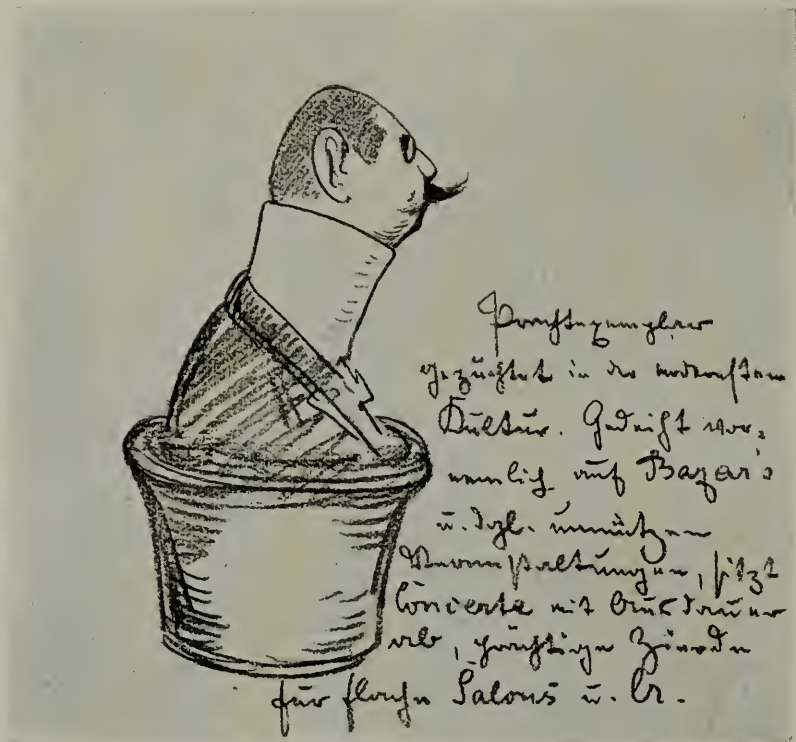 Prachtexemplar
gezüchtet in der modernsten
Kultur. Gedeiht vor-
nemlich auf Bazar's
u. dgl. unnützen
Veranstaltungen, sitzt
Concerte mit Ausdauer
ab, prächtige Zierde
für flache Salons u.